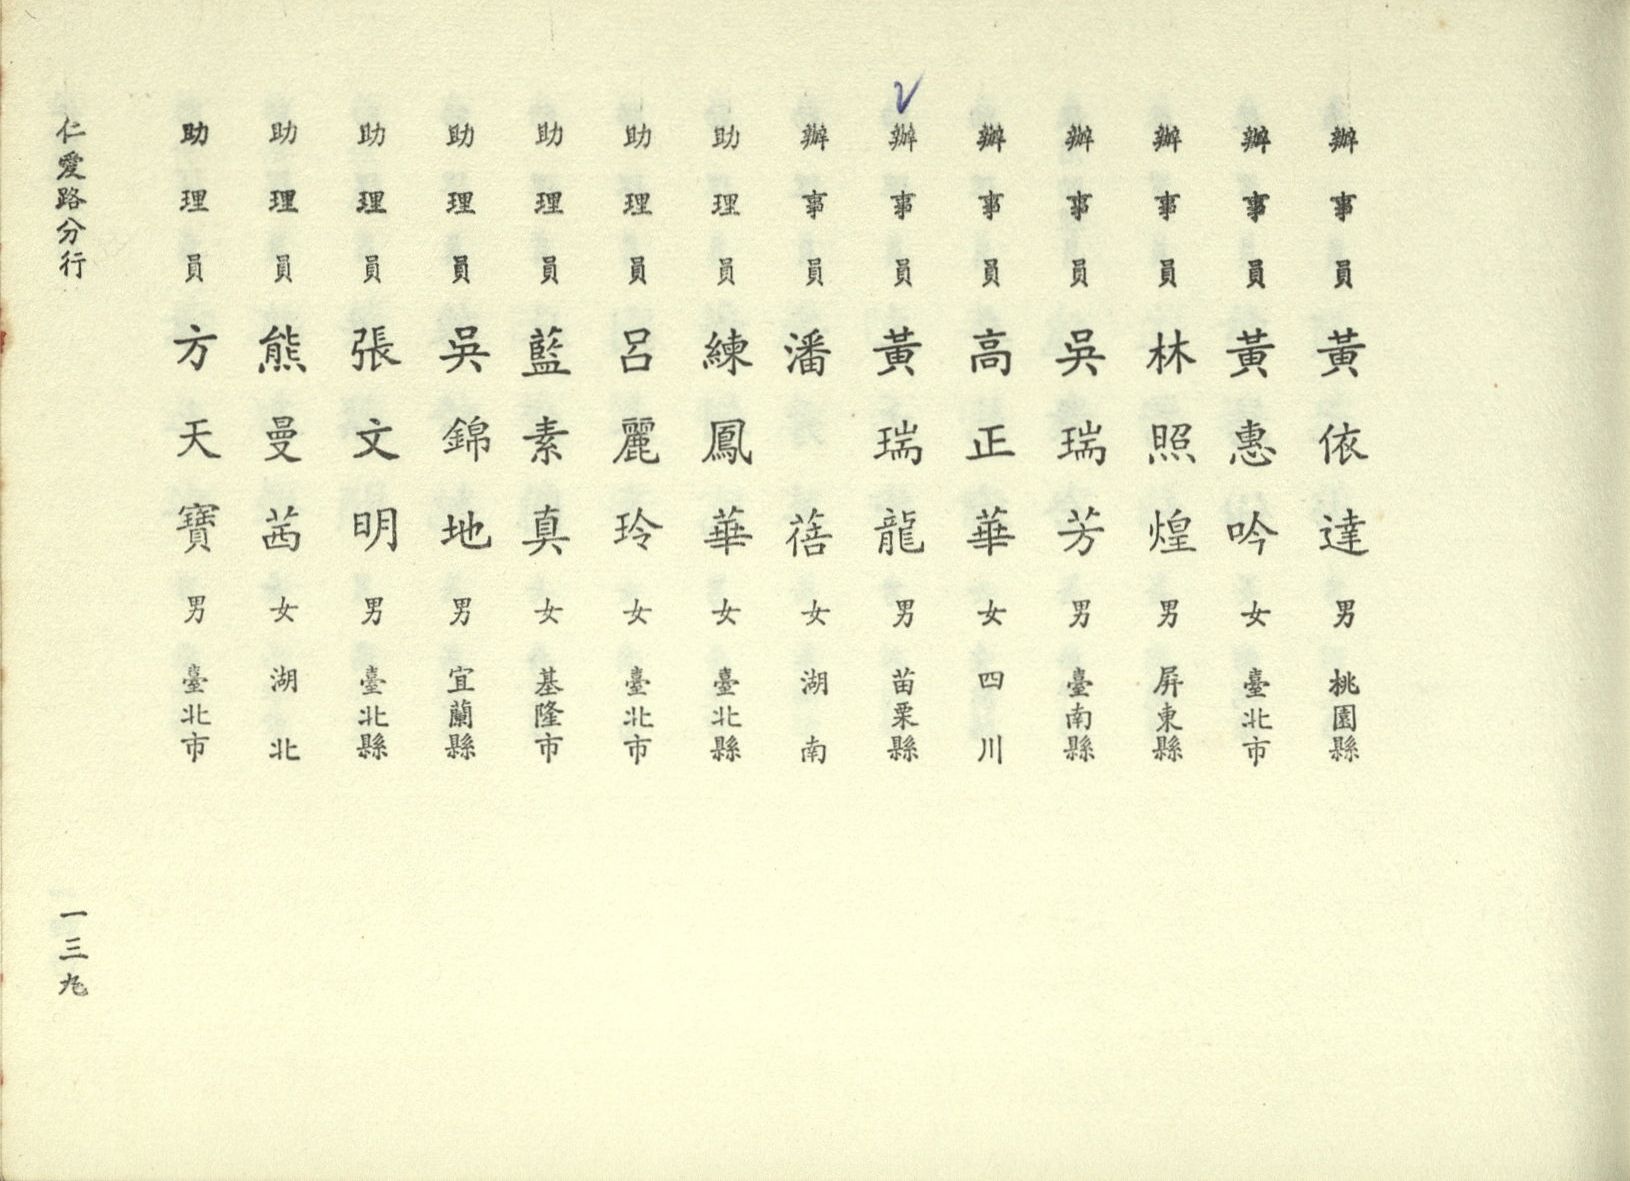 辦事員 黃依達 男 桃園縣
辦事員 黃惠吟 女 臺北市
辦事員 林照煌 男 屏東縣
辦事員 吳瑞芳 男 臺南縣
辦事員 高正華 女 四川
辦事員 黃瑞龍 男 苗栗縣
辦事員 潘蓓 女 湖南
助理員 練鳳華 女 臺北縣
助理員 呂麗玲 女 臺北市
助理員 藍素真 女 基隆市
助理員 吳錦地 男 宜蘭縣
助理員 張文明 男 臺北縣
助理員 熊曼茜 女 湖北
助理員 方天寶 男 臺北市
仁愛路分行
一三九